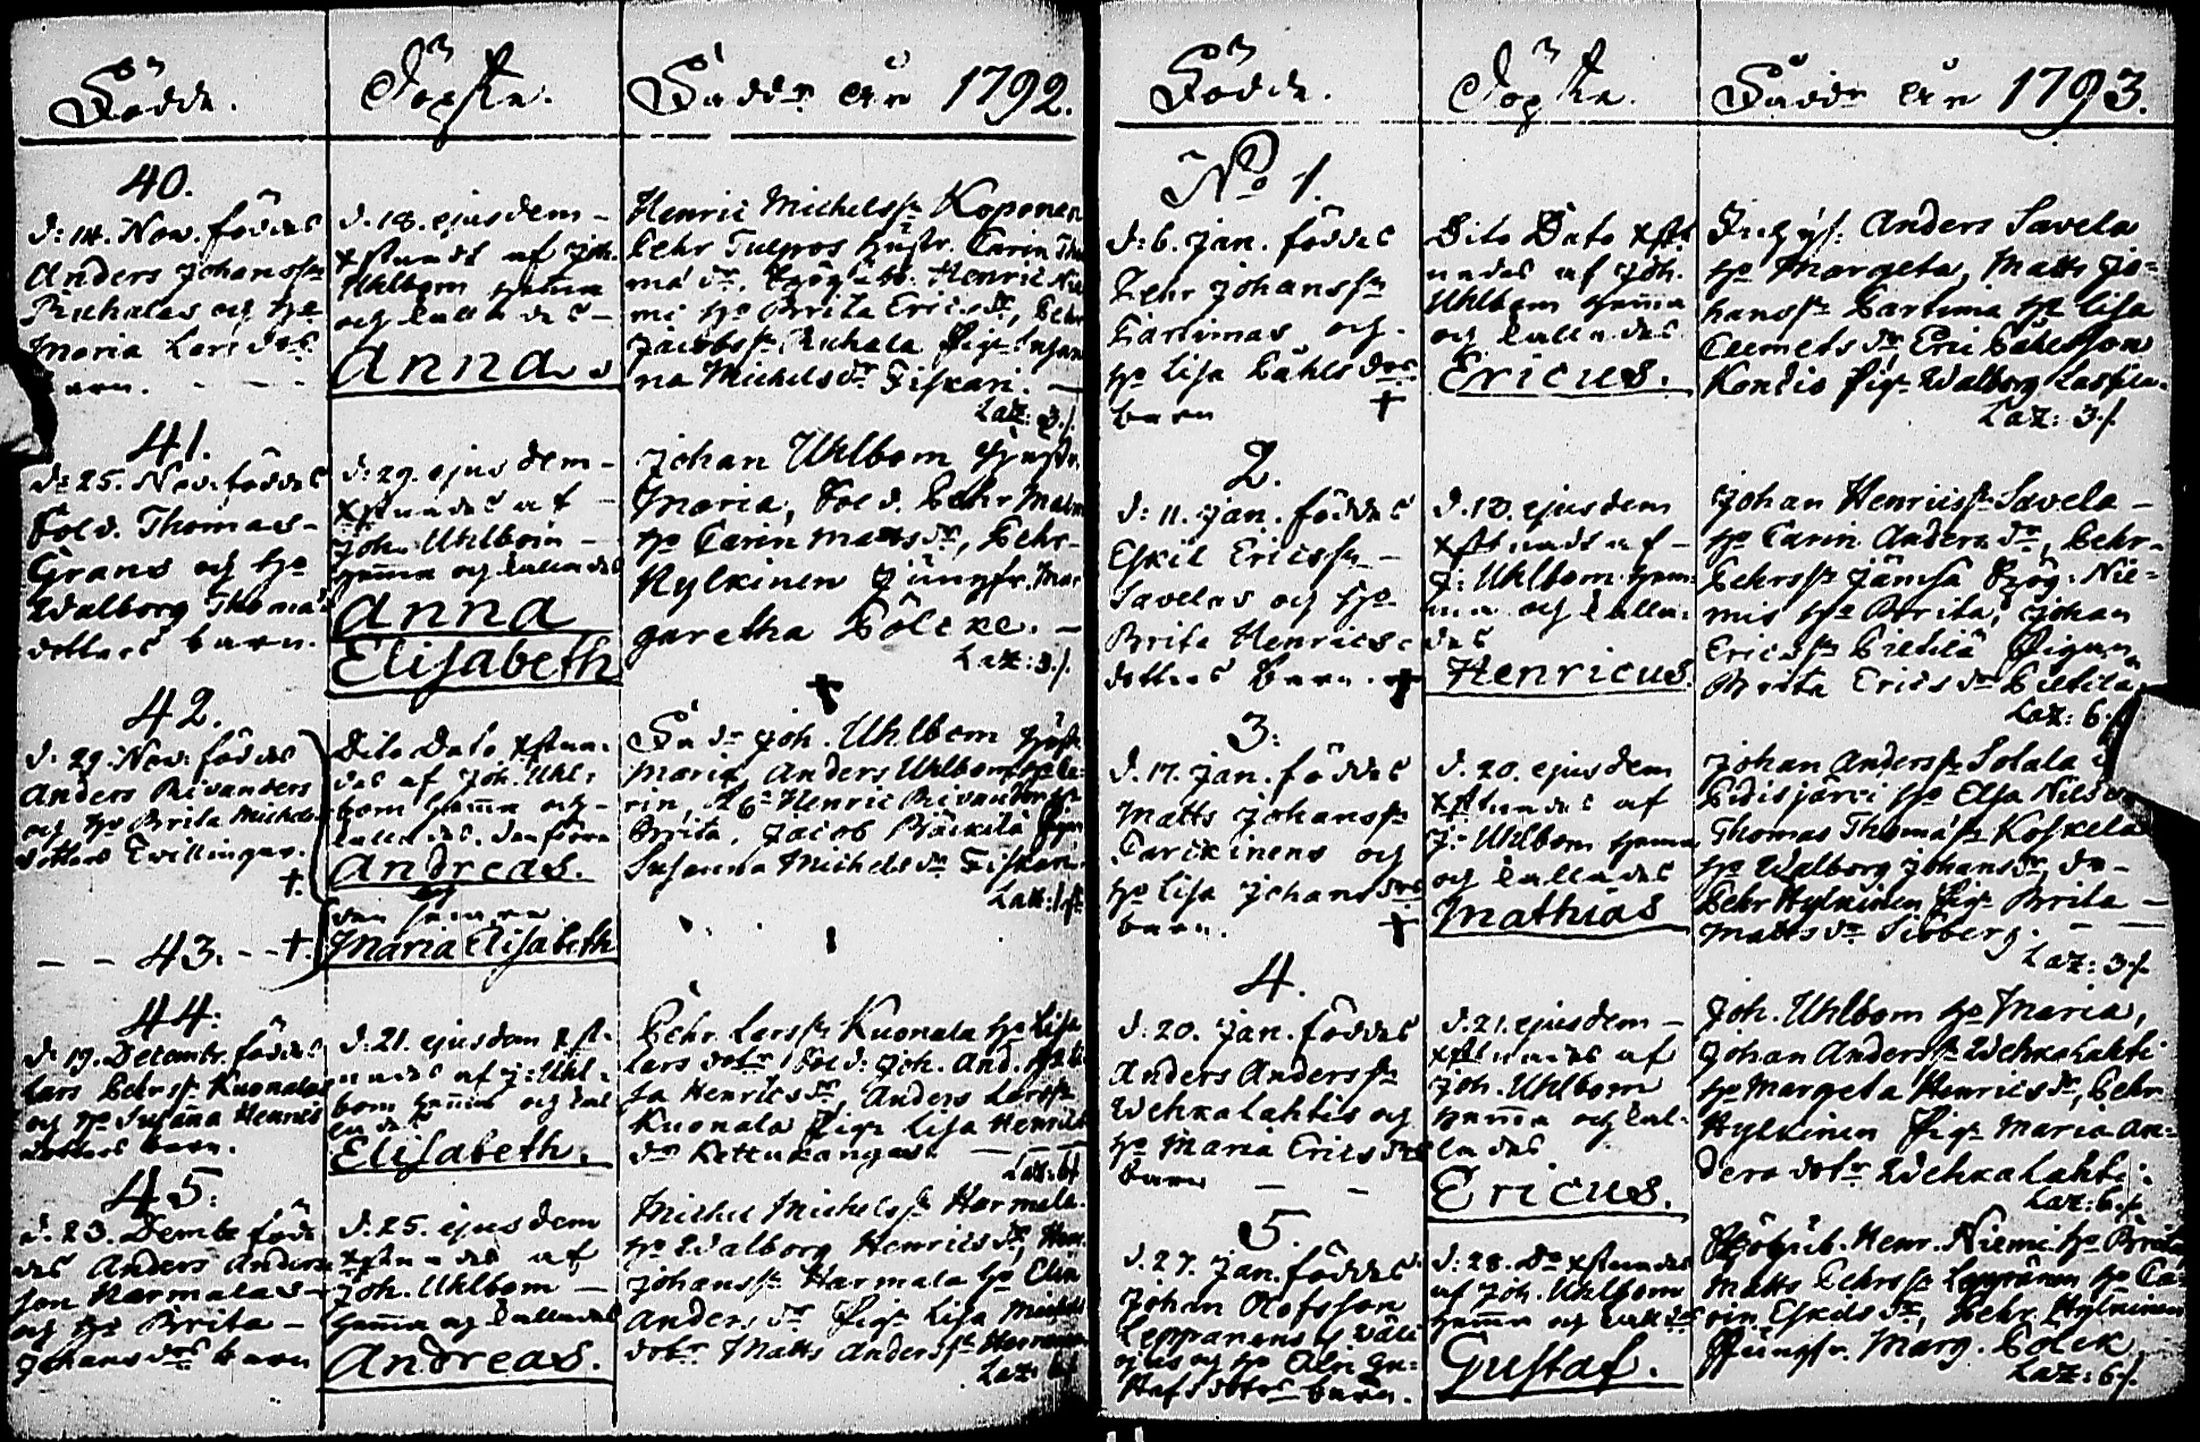 Födde.
Döpte.
Faddr åren 1792.
40.
d: 14. Nov. föddes
Anders Johanss:n
Ruhalas og h:o
Maria Lars do:s
barn.
d. 18. ejusdem
xstnads af Joh.
Uhlbom hemma
og kallades
Anna
Henric Michelss:n Koponen
Pehr Tulpos hustr. Carin Tho
ma d:r, Henric Nie
mi h:o Brita Erics d:r, Pehr
Jacobss:n Ruhala Pig: Susan
na Michels d:r Fiskari.
Laz: 3 f.
41.
d: 25. Nov. föddes
Sold. Thomas
Grans og h:o
Walborg Thoma
dotters barn.
d: 29. ejusdem
xstnades af
Joh. Uhlbom
hemma og kallades
Anna
Elisabeth
Johan Uhlbom hustr.
Maria, Sold. Pehr Malm
h:o Carin Matts d:r, Pehr
Hylkinen Jungfr. Mar
garetha Pölcke.
Laz: 3 f.
42.
d. 29. Nov. föddes
Anders Rivanders
og h:o Brita Michels
dotters Tvillingar.
†.
Dito Dato xstna
des af Joh. Uhl
bom hemma og
kallades. den förra
Andreas.
og
den senare
Maria Elisabeth
Fad:r Joh. Uhlbom hust.
Maria, Anders Uhlbom h:o Ca
rin, Henric Rivander h:o
Brita, Jacob Björkilä Pigan
Susanna Michels d:r Fiskari.
Laz:
– – 43. – – †.
44:
d: 19. Decembr. föddes
Lars Pehrss:n Kuonalas
og h:o Susanna Henrics
dotters barn.
d: 21. ejusdem xst
nades af J: Uhl
bom hemma og kal
lades
Elisabeth.
Pehr Larss:n Kuonala h:o Lisa
Lars dot:r, Sold: Joh. And. h:o Li
sa Henrics d:r, Anders Larss:n
Kuonala Pig: Lisa Henrics
d:r Kettukangas
Laz: 6 f
45:
d. 23. Dembr föd
des Anders Anders
son Harmalas
og h:o Brita
Johans dot:s barn
d. 25. ejusdem
xstnades af
Joh. Uhlbom
hemma og kallades
Andreas.
Michel Michelss:n Harmala
h:o Walborg Henrics d:r, Hen.
Johanss:n Harmala h:o Elin
Anders d:r Pig: Lisa Michels
dot:r Matts Anderss:n
Laz: 6 f
Födde.
Döpte.
Faddr åren 1793.
N:o 1.
d: 6. Jan. föddes
Pehr Johanss:n
Partimas og
h:o Lisa Påhls do:s
barn †
Dito Dato xst
nades af Joh.
Uhlbom hemma
og kallades
Ericus.
Anders Savela
h:o Margeta, Matts Jo
hanss:n Partima h:o Lisa
Clemets d:r, Eric Påhlsson
Kontio Pig: Walborg Laskila.
Laz: 3 f.
2.
d: 11. Jan. föddes
Eskil Ericss:n
Savelas og h:o
Brita Henrics
dotters barn. †
d. 18. ejusdem
xstnads af
J: Uhlbom hem
ma og kalla
des
Henricus.
Johan Henricss:n Savela
h:o Carin Anders d:r, Pehr
Pehrss:n Jämsä Nie
mis h:o Brita, Johan
Ericss:n Pietilä Pigan
Brita Erics d:r Pietilä
Laz: 6 f.
3:
d. 17. Jan. föddes
Matts Johanss:n
Tarckinens og
h:o Lisa Johans do:s
barn. †
d. 20. ejusdem
xstnades af
J: Uhlbom hemma
og kallades
Mathias
Johan Anderss:n Solala
Pidisjärvi h:o Elsa Nils d:r
Thomas Thomass:n Koskela
h:o Walborg Johans d:r, d:o
Pehr Hylkinen Pig: Brita
Matts d:r Siöberg.
Laz: 3 f.
4.
d. 20. Jan. föddes
Anders Anderss:n
Wehkalahtis og
h:o Maria Erics do:s
barn
d. 21. ejusdem
xstnades af
Joh. Uhlbom
hemma og kal
lades
Ericus.
Joh. Uhlbom h:o Maria,
Johan Anderss:n Wehkalahti
h:o Margeta Henrics d:r, Pehr
Hylkinen Pig: Maria An
ders dot:r Wehkalahti.
Laz: 6 f.
5.
d. 27. Jan. föddes
Johan Olofsson
Leppänens
og h:o Alri Gu
stafs dot:s barn.
d: 28. d:o xstnades
af Joh. Uhlbom
hemma og kallades
Gustaf.
Henr. Niemi h:o Brita
Matts Pehrss:n Leppänen h:o Ca
rin Eskils d:r, Pehr Hylkinen
Jungfr. Marg. Pölck
Laz: 6 f.